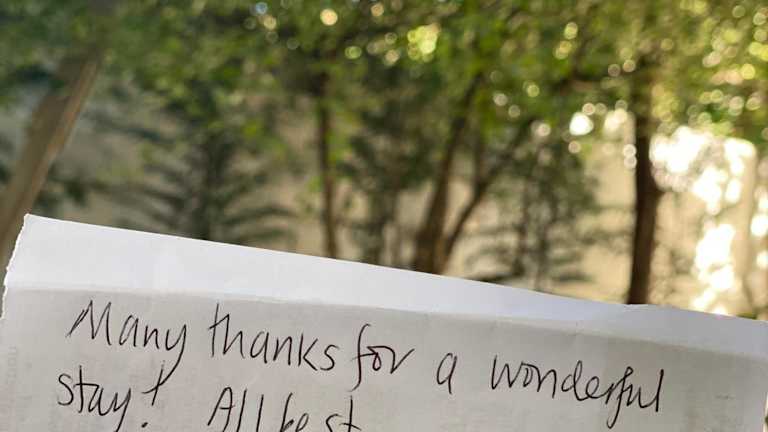 Many thanks for a wonderful
stay! All best